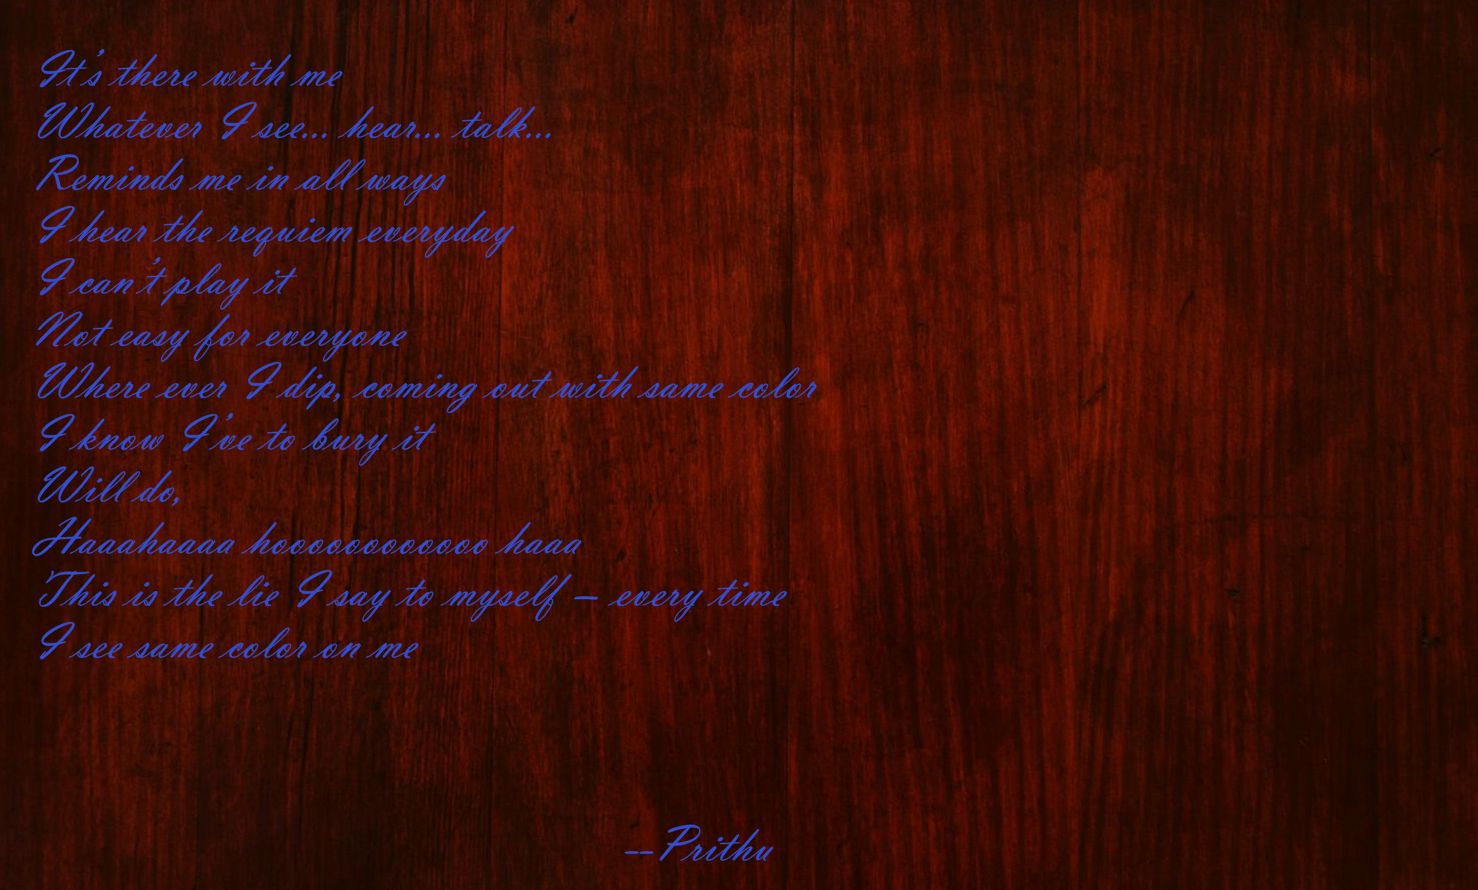 It's there with me
Whatever I see... hear... talk...
Reminds me in all ways
I hear the requiem everyday
I can't play it
Not easy for everyone
Where ever I dip, coming out with same color
I know I've to bury it
Will do,
Haaahaaaa hoooooooooooo haaa
This is the lie I say to myself – every time
I see same color on me
--Prithu